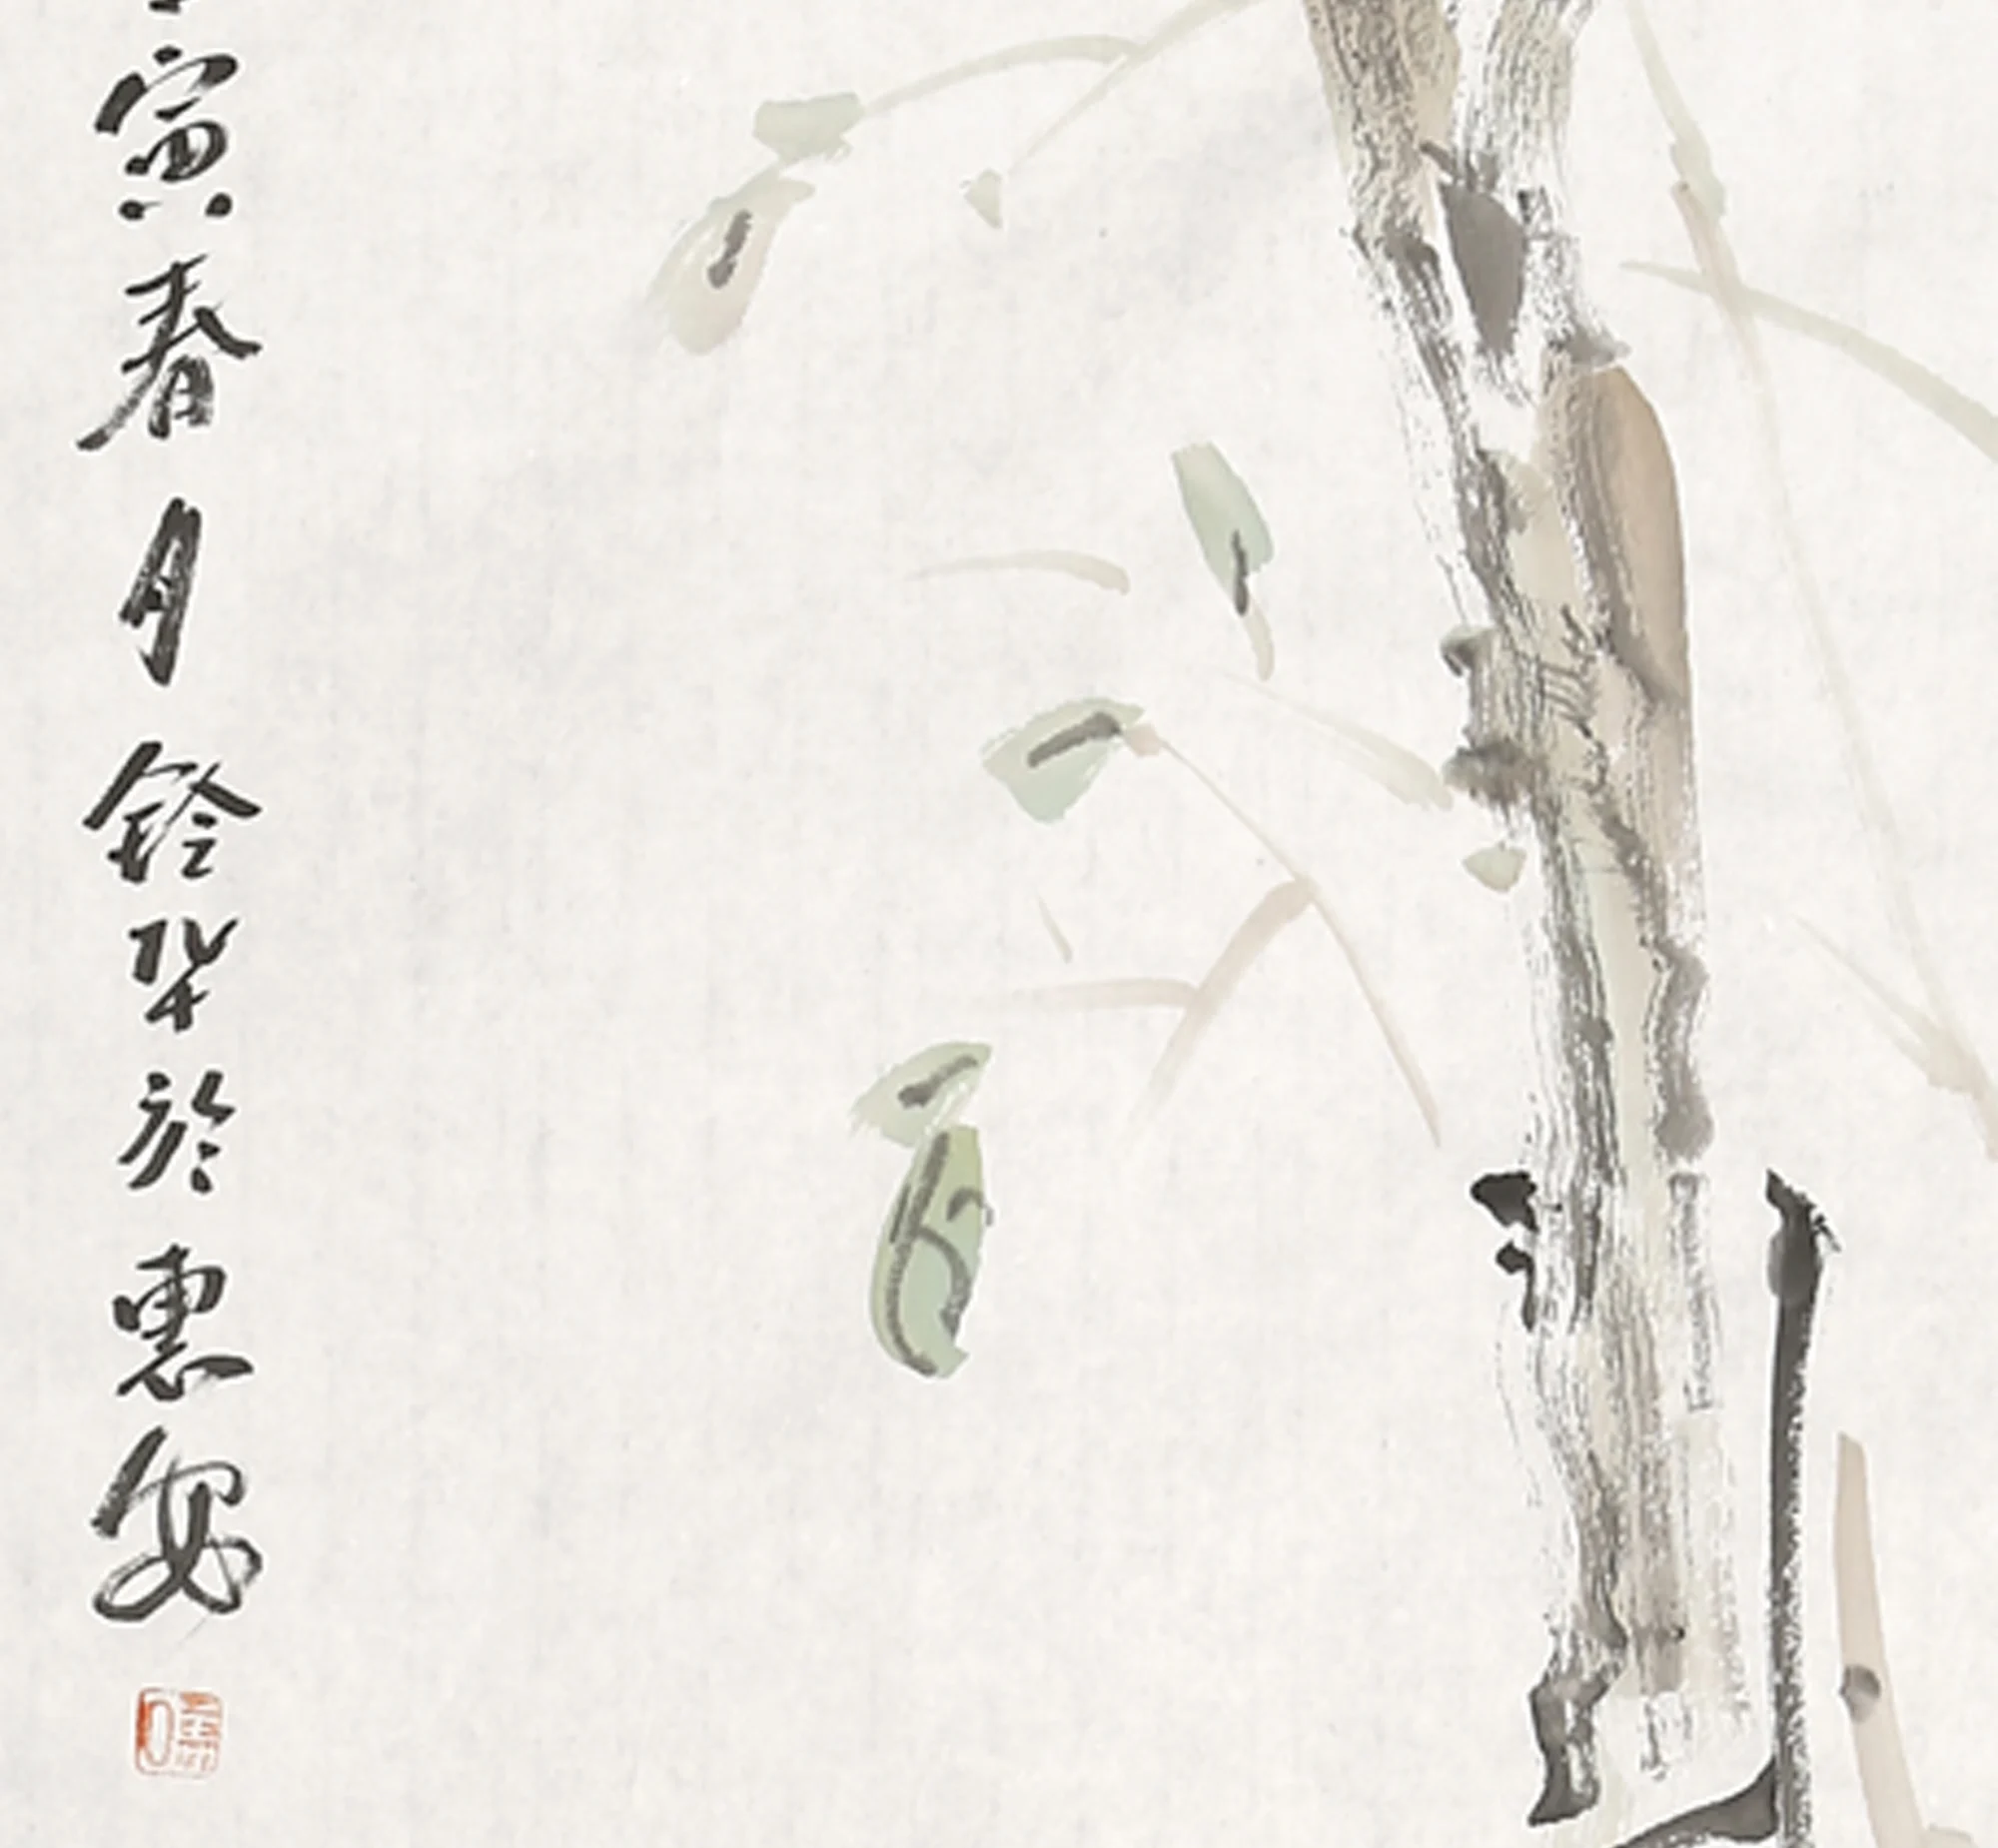 寅春月铃华於惠安